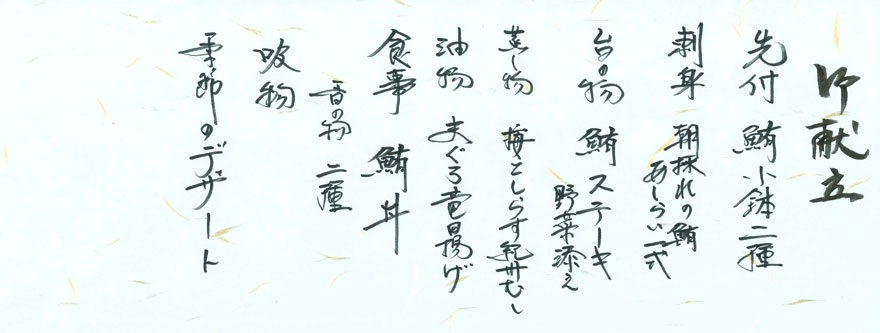 御献立
先付 鮪小鉢二種
刺身 朝採れの鮪
あしらい一式
台の物 鮪ステーキ
野菜添え
蒸し物 梅としらす紀州むし
油物 まぐろ竜田揚げ
食事 鮪丼
香の物 二種
吸物
季節のデザート